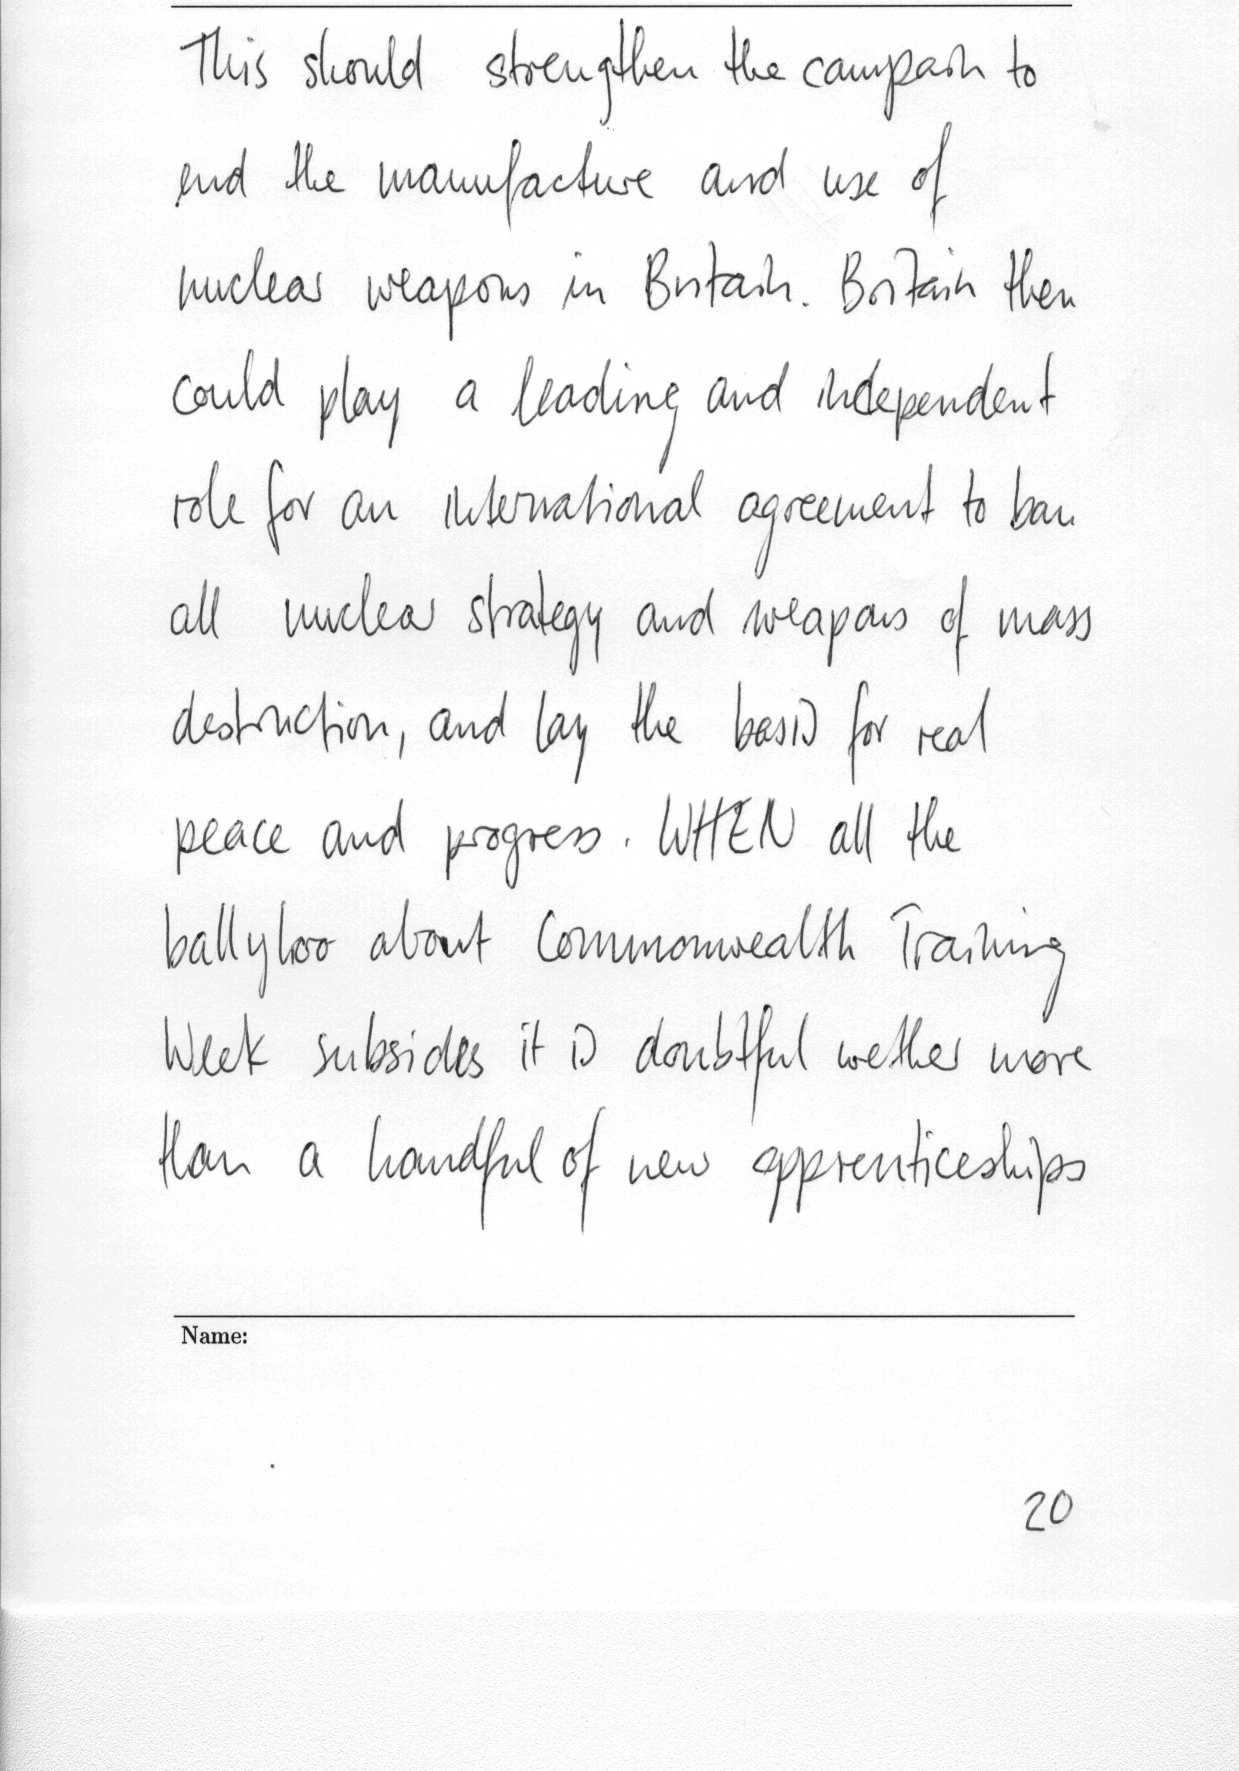 This should strengthen the campain to
end the manufacture and use of
nuclear weapons in Britain. Britain then
could play a leading and independent
role for an international agreement to ban
all nuclear strategy and weapons of mass
destruction, and lay the basis for real
peace and progress. WHEN all the
ballyhoo about Commonwealth Training
Week subsides it is doubtful wether more
than a handful of new apprenticeships
Name:
20